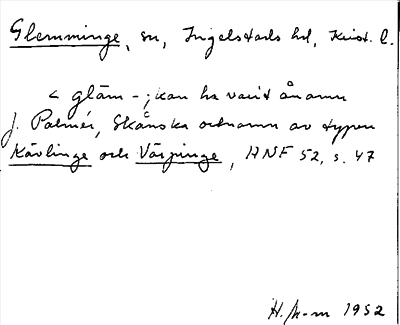 Glemminge, sn, Ingelstads hd, Krist. l.
< gläm-; kan ha varit ånamn
J. Palmér, Skånska ortnamn av typen
Kävlinge och Värpinge, ANF 52, s. 47
H. 1952